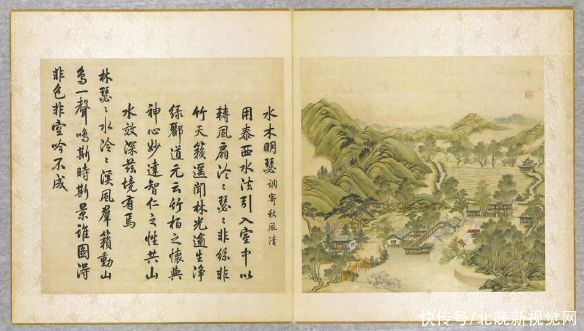 水木明瑟 調寄秋風清
用泰西水法引入室中以
轉風扇泠〻瑟〻非絲非
竹天籟遙聞林光逾生淨
綠酈道元云竹柏之懷與
神心妙達智仁之性共山
水效深茲境有焉
林瑟〻水泠〻溪風羣籟動山
鳥一聲鳴斯時斯景誰圖得
非色非空吟不成
快传号/北晚新视觉网